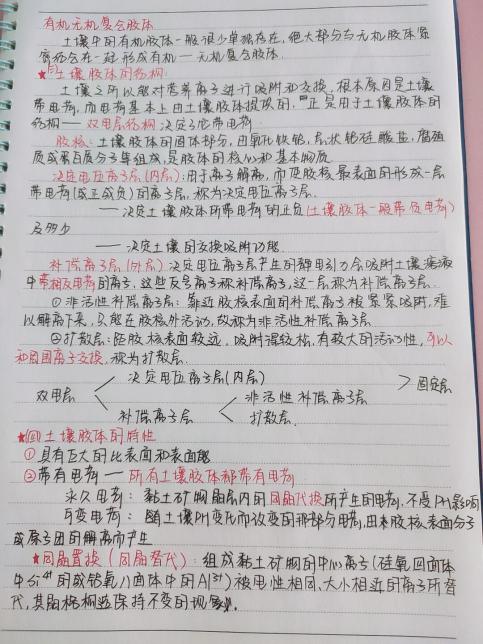 有机无机复合胶体
土壤中的有机胶体一般很少单独存在，绝大部分与无机胶体紧
密结合在一起形成有机—无机复合胶体.
★(三)土壤胶体的结构:
土壤之所以能对营养离子进行吸附和交换，根本原因是土壤
带电荷，而电荷基本上由土壤胶体提供的，正是由于土壤胶体的
结构——双电层结构决定了它带电荷.
胶核:土壤胶体的固体部分，由氧化铁铝，层状铝硅酸盐，腐殖
质或蛋白质分子等组成，是胶体的核心和基本物质.
决定电位离子层(内层):由于离子解离，而使胶核最表面的形成一层
带电荷(或正或负)的离子层，称为决定电位离子层.
——决定土壤胶体所带电荷的正负(土壤胶体一般带负电荷)
及多少
——决定土壤的交换吸附功能.
补偿离子层(外层)决定电位离子层产生的静电引力会吸附土壤溶液
中带相反电荷的离子，这些反号离子称补偿离子，这一层称为补偿离子层.
①非活性补偿离子层:靠近胶核表面的补偿离子被紧紧吸附，难
以解离下来，只能在胶核外活动，故称为非活性补偿离子层
②扩散层:距胶核表面较远，吸附得较松，有较大的活动性，可以
和周围离子交换，称为扩散层.
决定电位离子层(内层)
双电层 非活性补偿离子层 >固定层
补偿离子层 扩散层.
★(四)土壤胶体的特性
①具有巨大的比表面和表面能
②带有电荷——所有土壤胶体都带有电荷
永久电荷:黏土矿物晶层内的同晶代换所产生的电荷，不受PH影响
可变电荷:随土壤PH变化而改变的那部分电荷，由来胶核表面分子
或原子团的解离而产生
★同晶置换(同晶替代):组成黏土矿物的中心离子(硅氧四面体
中Si⁴⁺的或铝氧八面体中的Al³⁺)被电性相同、大小相近的离子所替
代，其晶格构造保持不变的现象.